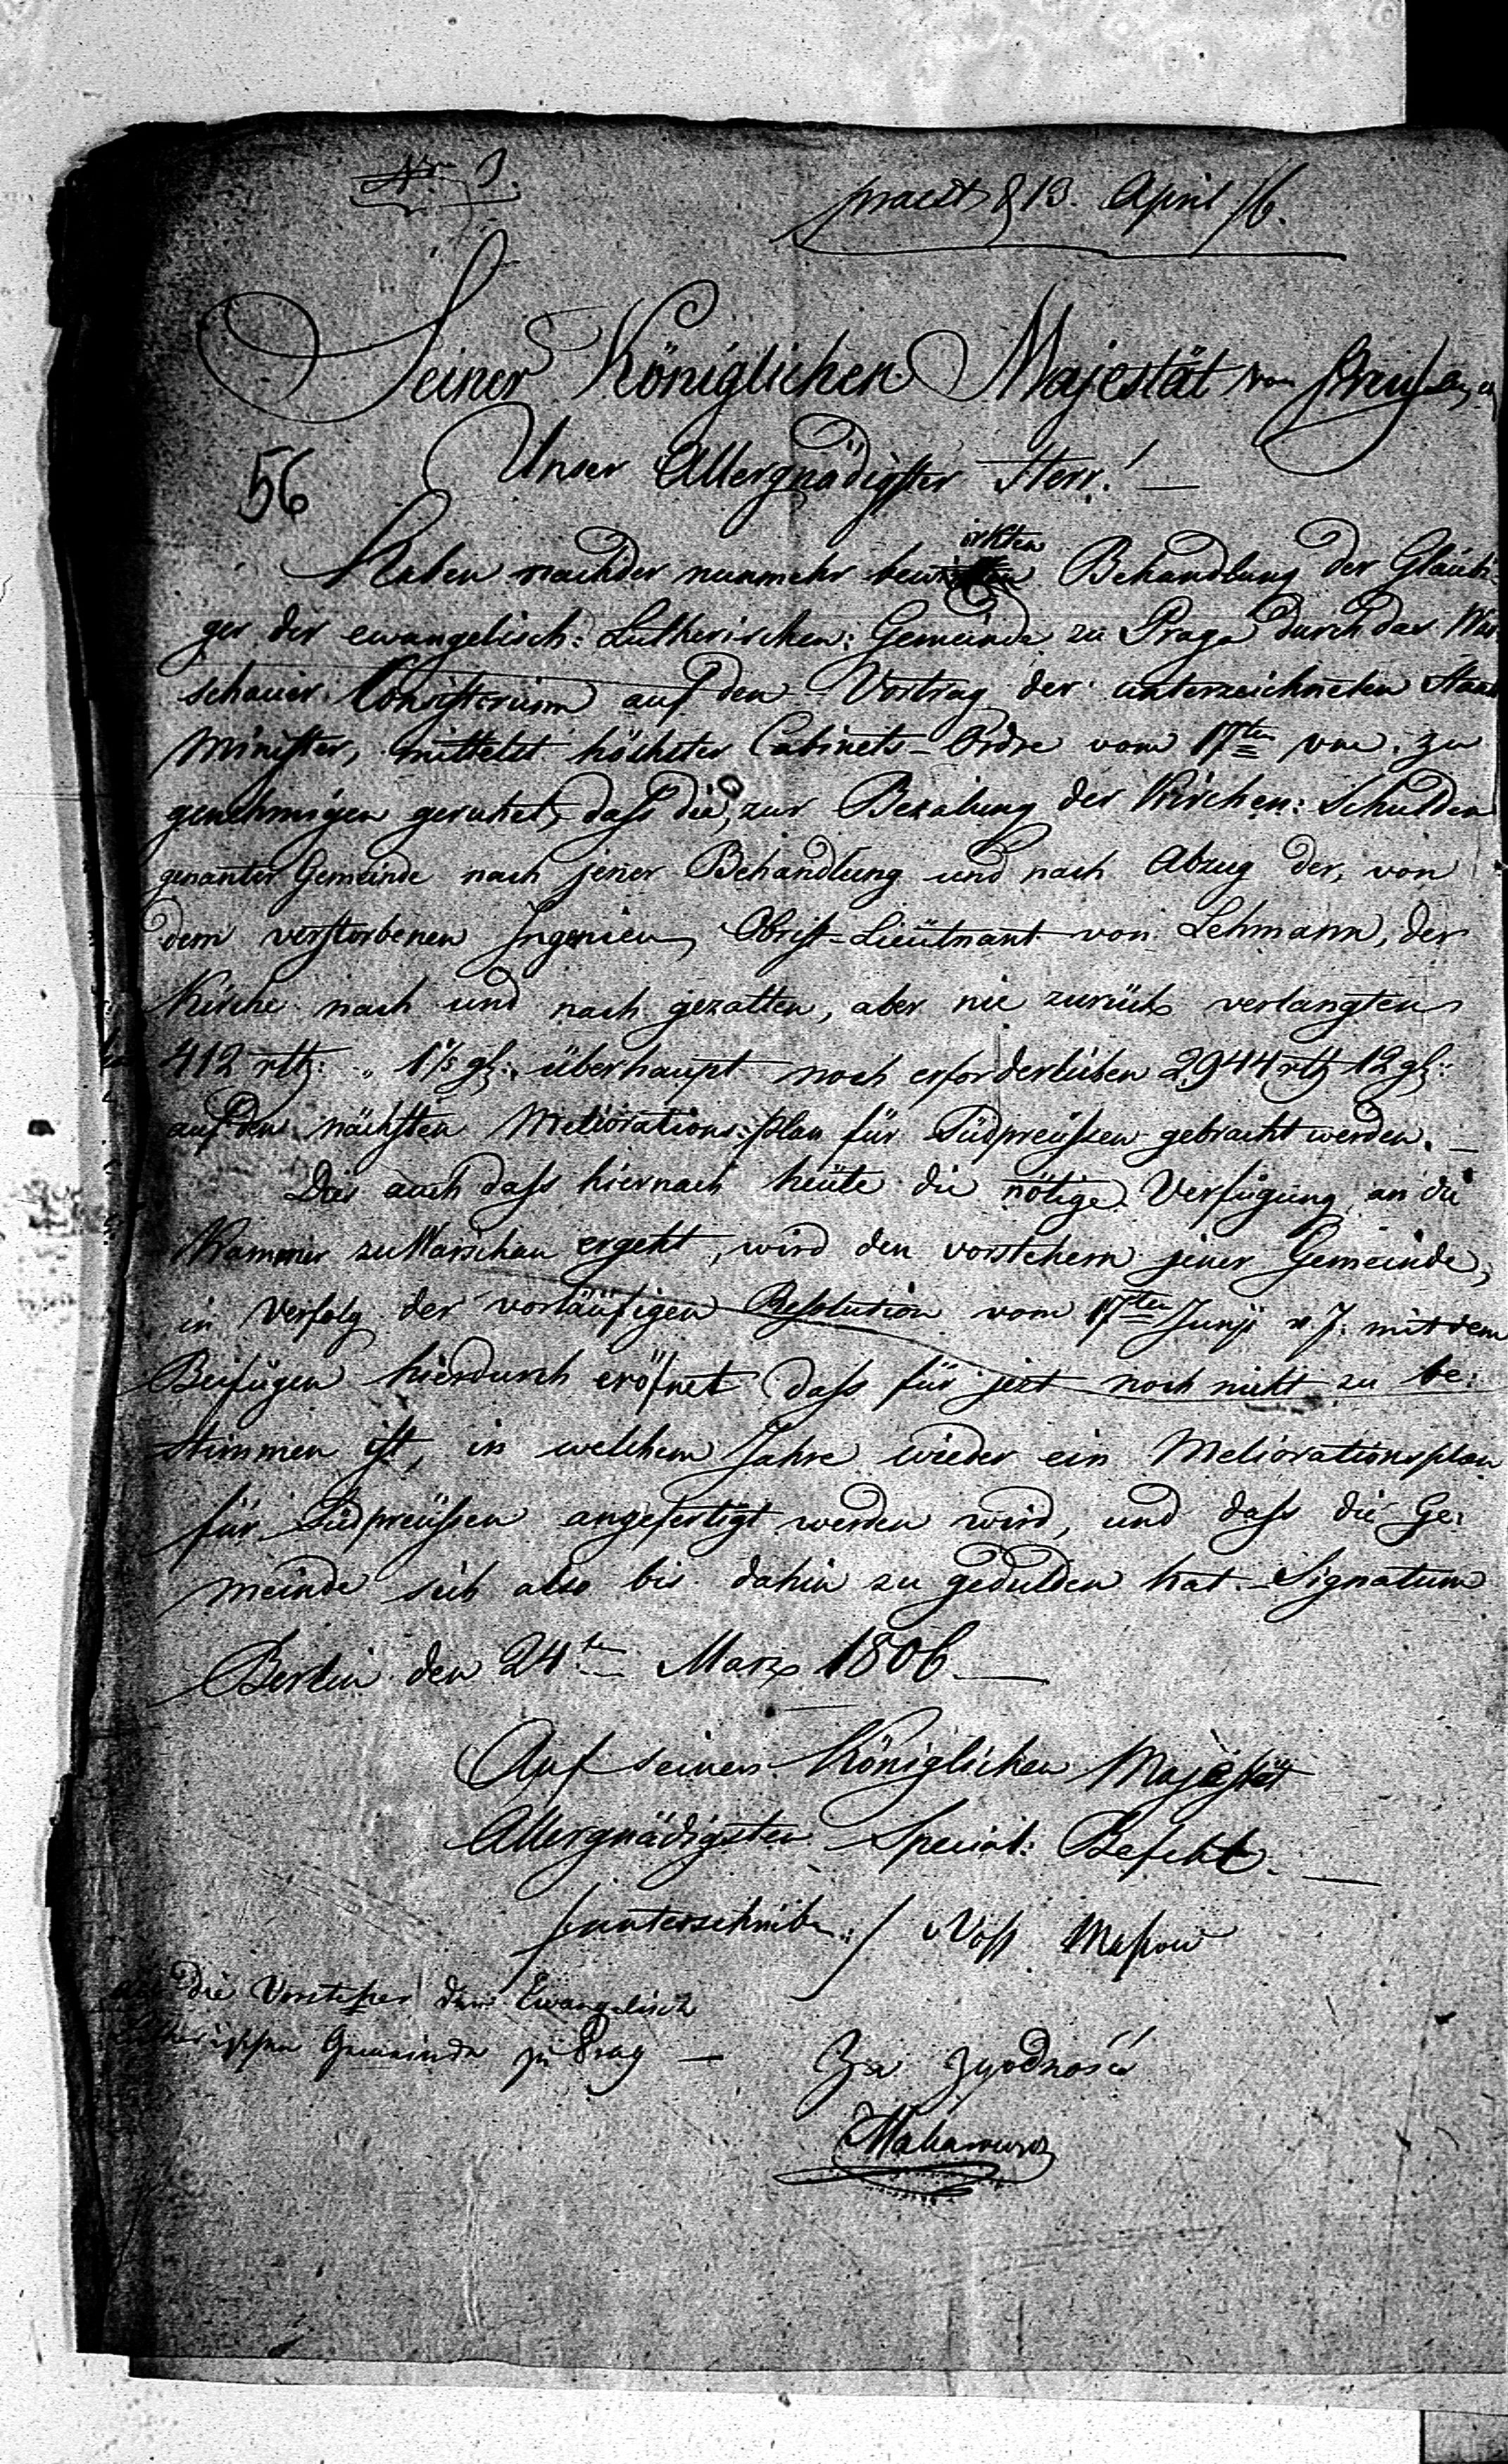 Nro 3.
praest d 13. April /6.
Seiner Königlichen Majestät von Preußen,
Unser Allergnädigster Herr! —
56
irkten
Haben nach der nunmehr bew Behandlung der Gläubi-
ger der ewangelisch: Lutherischen: Gemeinde zu Praga durch das War
schauer Consistorium auf den Vortrag der unterzeichneten Staats
Minister, mittelst höchster Cabinets-Ordre vom 17ten zu
genehmigen geruhet, daß die, zur Bezalung der Kirchen: Schulden
genanter Gemeinde nach jener Behandlung und nach Abzug der, von
dem verstorbenen Ingenieur Obrist-Lieütnant von Lehmann, der
Kirche nach und nach gezalten, aber nie zurück verlangten
412 rtl: „ 1 1/5 gl: überhaupt noch erforderlichen 2944 rtl 12 gl:
auf den nächsten Meliorations:plan für Südpreüßen gebracht werden. —
Dies auch daß hiernach heüte die nötige Verfügung an die
Kammer zu Warschau ergeht, wird den vorstehern jener Gemeinde,
in Verfolg der vorläüfigen Resolution vom 17ten Junji v. J. mit dem
Beifügen hierdurch eröfnet daß für jezt noch nicht zu be:
stimmen ist, in welchem Jahre wieder ein Meliorationsplan
für Südpreüßen angefertigt werden wird, und daß die Ge:
meinde sich also bis dahin zu gedulden hat. Signatum
Berlin den 24ten Marz 1806 —
Auf seiner Königlichen Majestät
Allergnädigsten Special: Befehl. —
/: unterschrieben :/ Voß Maßow
An die Vorsteher der Ewangelisch
Lutherischen Gemeinde zu Prag —
Za zgodność